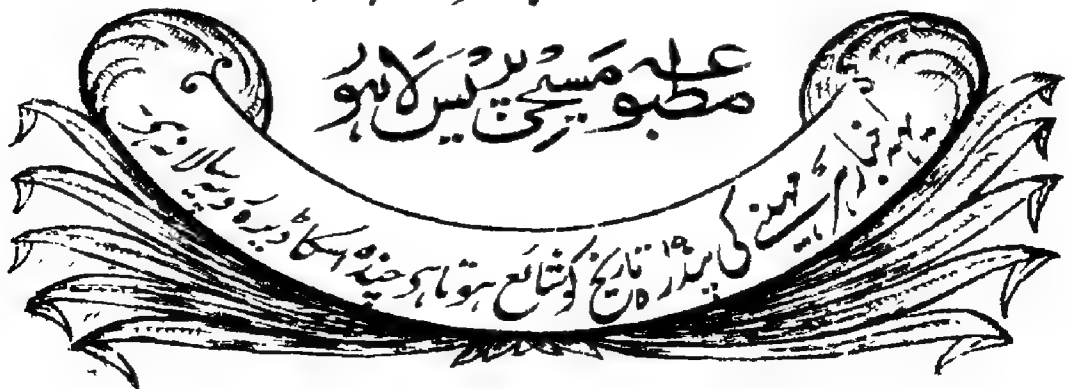 مطبوعہ مسیحی پریس لاہور
یہہ اخبار ہر مہینے کی پندرہ تاریخ کو شائع ہوتا ہی چندہ اسکا ڈیڑہ روپیہ سالانہ ہی